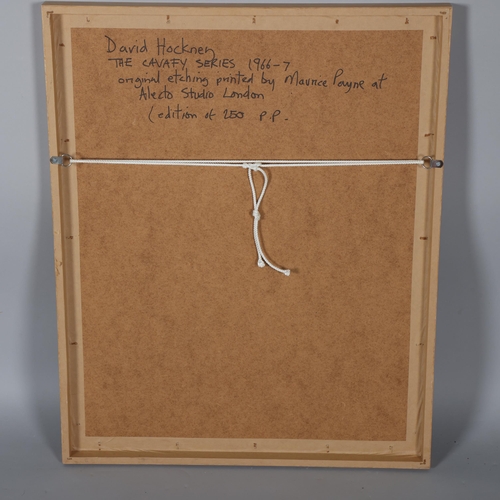 David Hockney
THE CAVAFY SERIES 1966-7
original etching printed by Maurice Payne at
Alecto Studio London
(edition of 250 P.P.